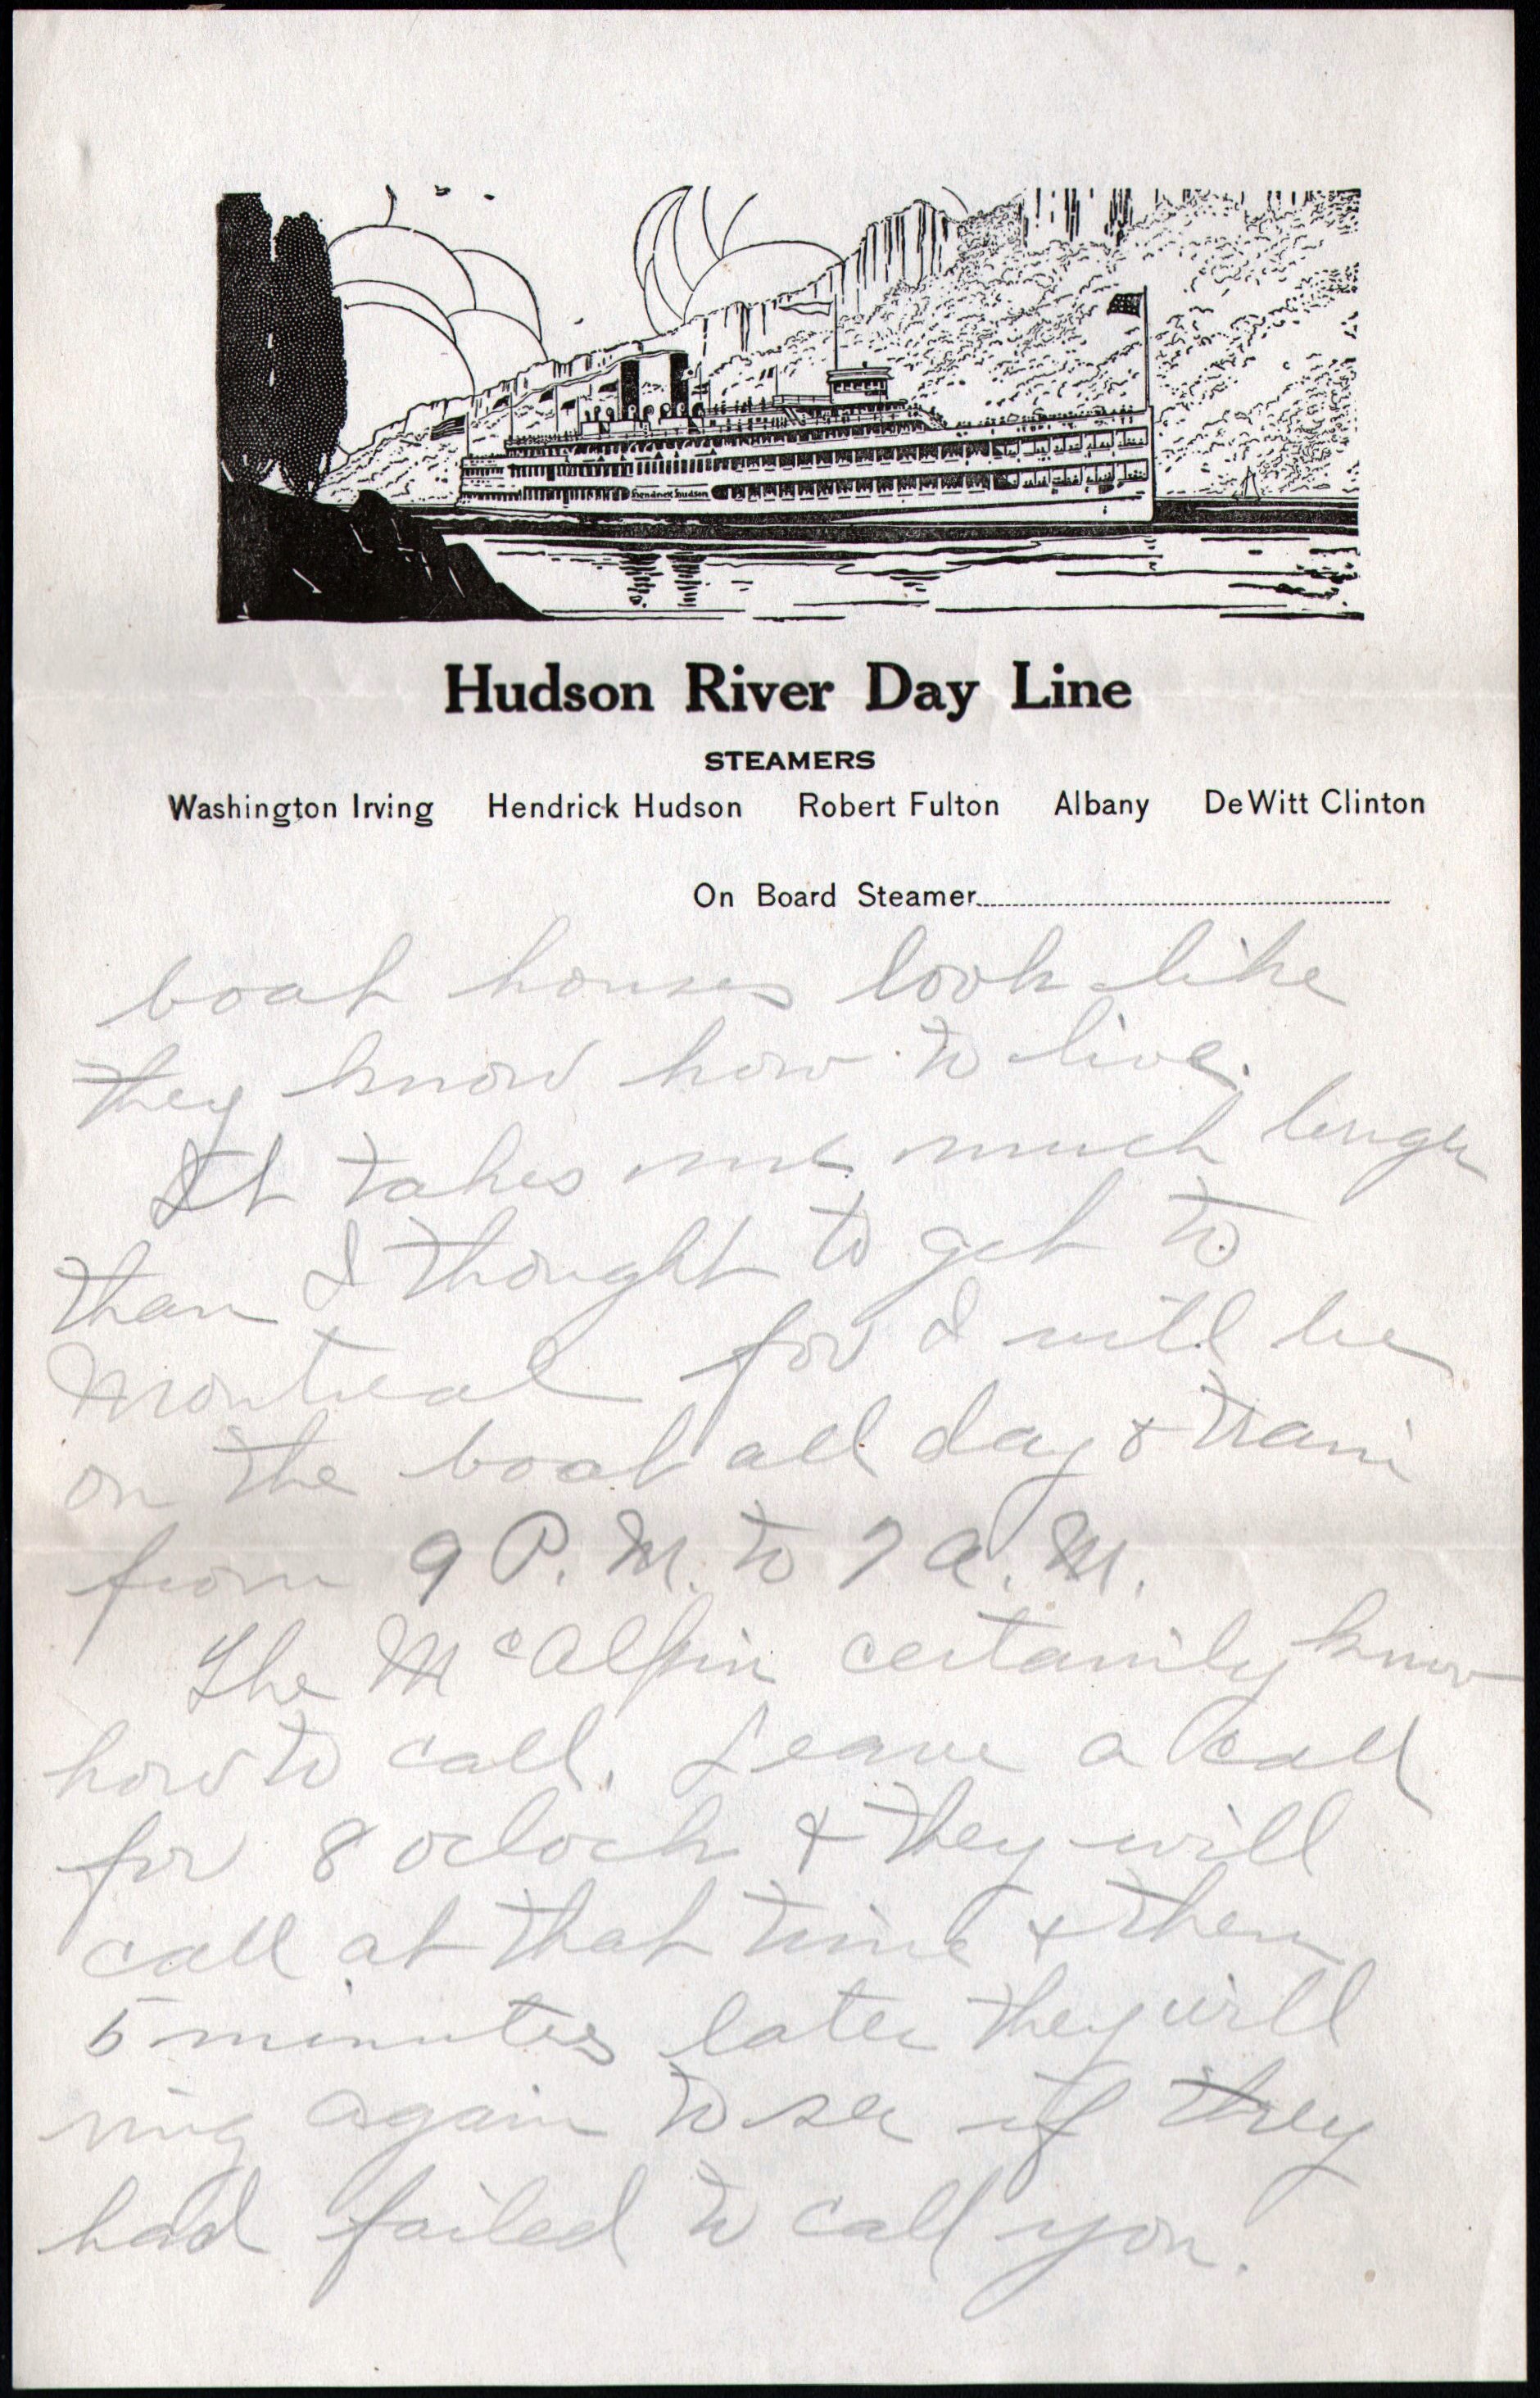 Hendrick Hudson
Hudson River Day Line
STEAMERS
Washington Irving Hendrick Hudson Robert Fulton Albany DeWitt Clinton
On Board Steamer
boat houses look like
they know how to live.
It takes me much longer
than I thought to get to
Montreal for I will be
on the boat all day & train
from 9 P.M. to 7 A.M.
The McAlpin certainly know
how to call. Leave a call
for 8 oclock & they will
call at that time & then
5 minutes later they will
ring again to see if they
had failed to call you.